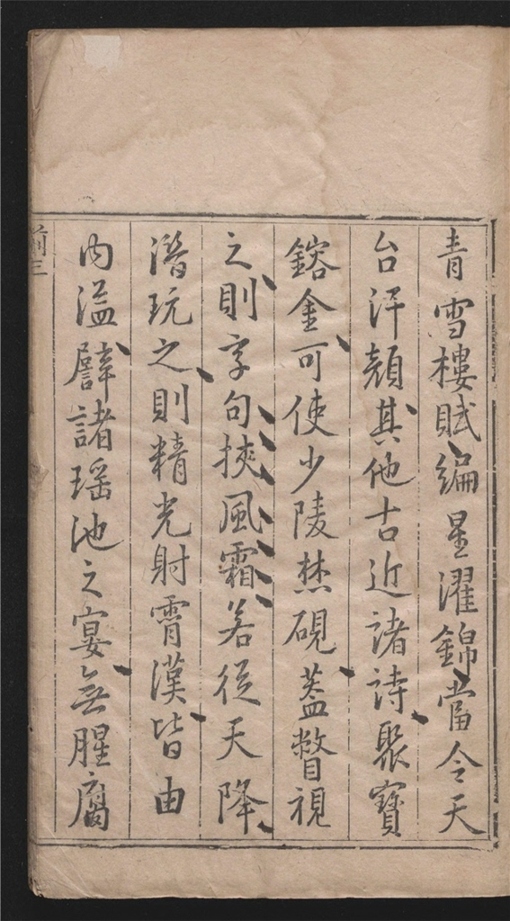 青雪樓賦編星濯錦當令天
台汗顏其他古近諸詩聚寶
鎔金可使少陵焚硯蓋瞥視
之則字句挾風霜若從天降
潛玩之則精光射霄漢皆由
內溢譬諸瑤池之宴無腥腐
前三